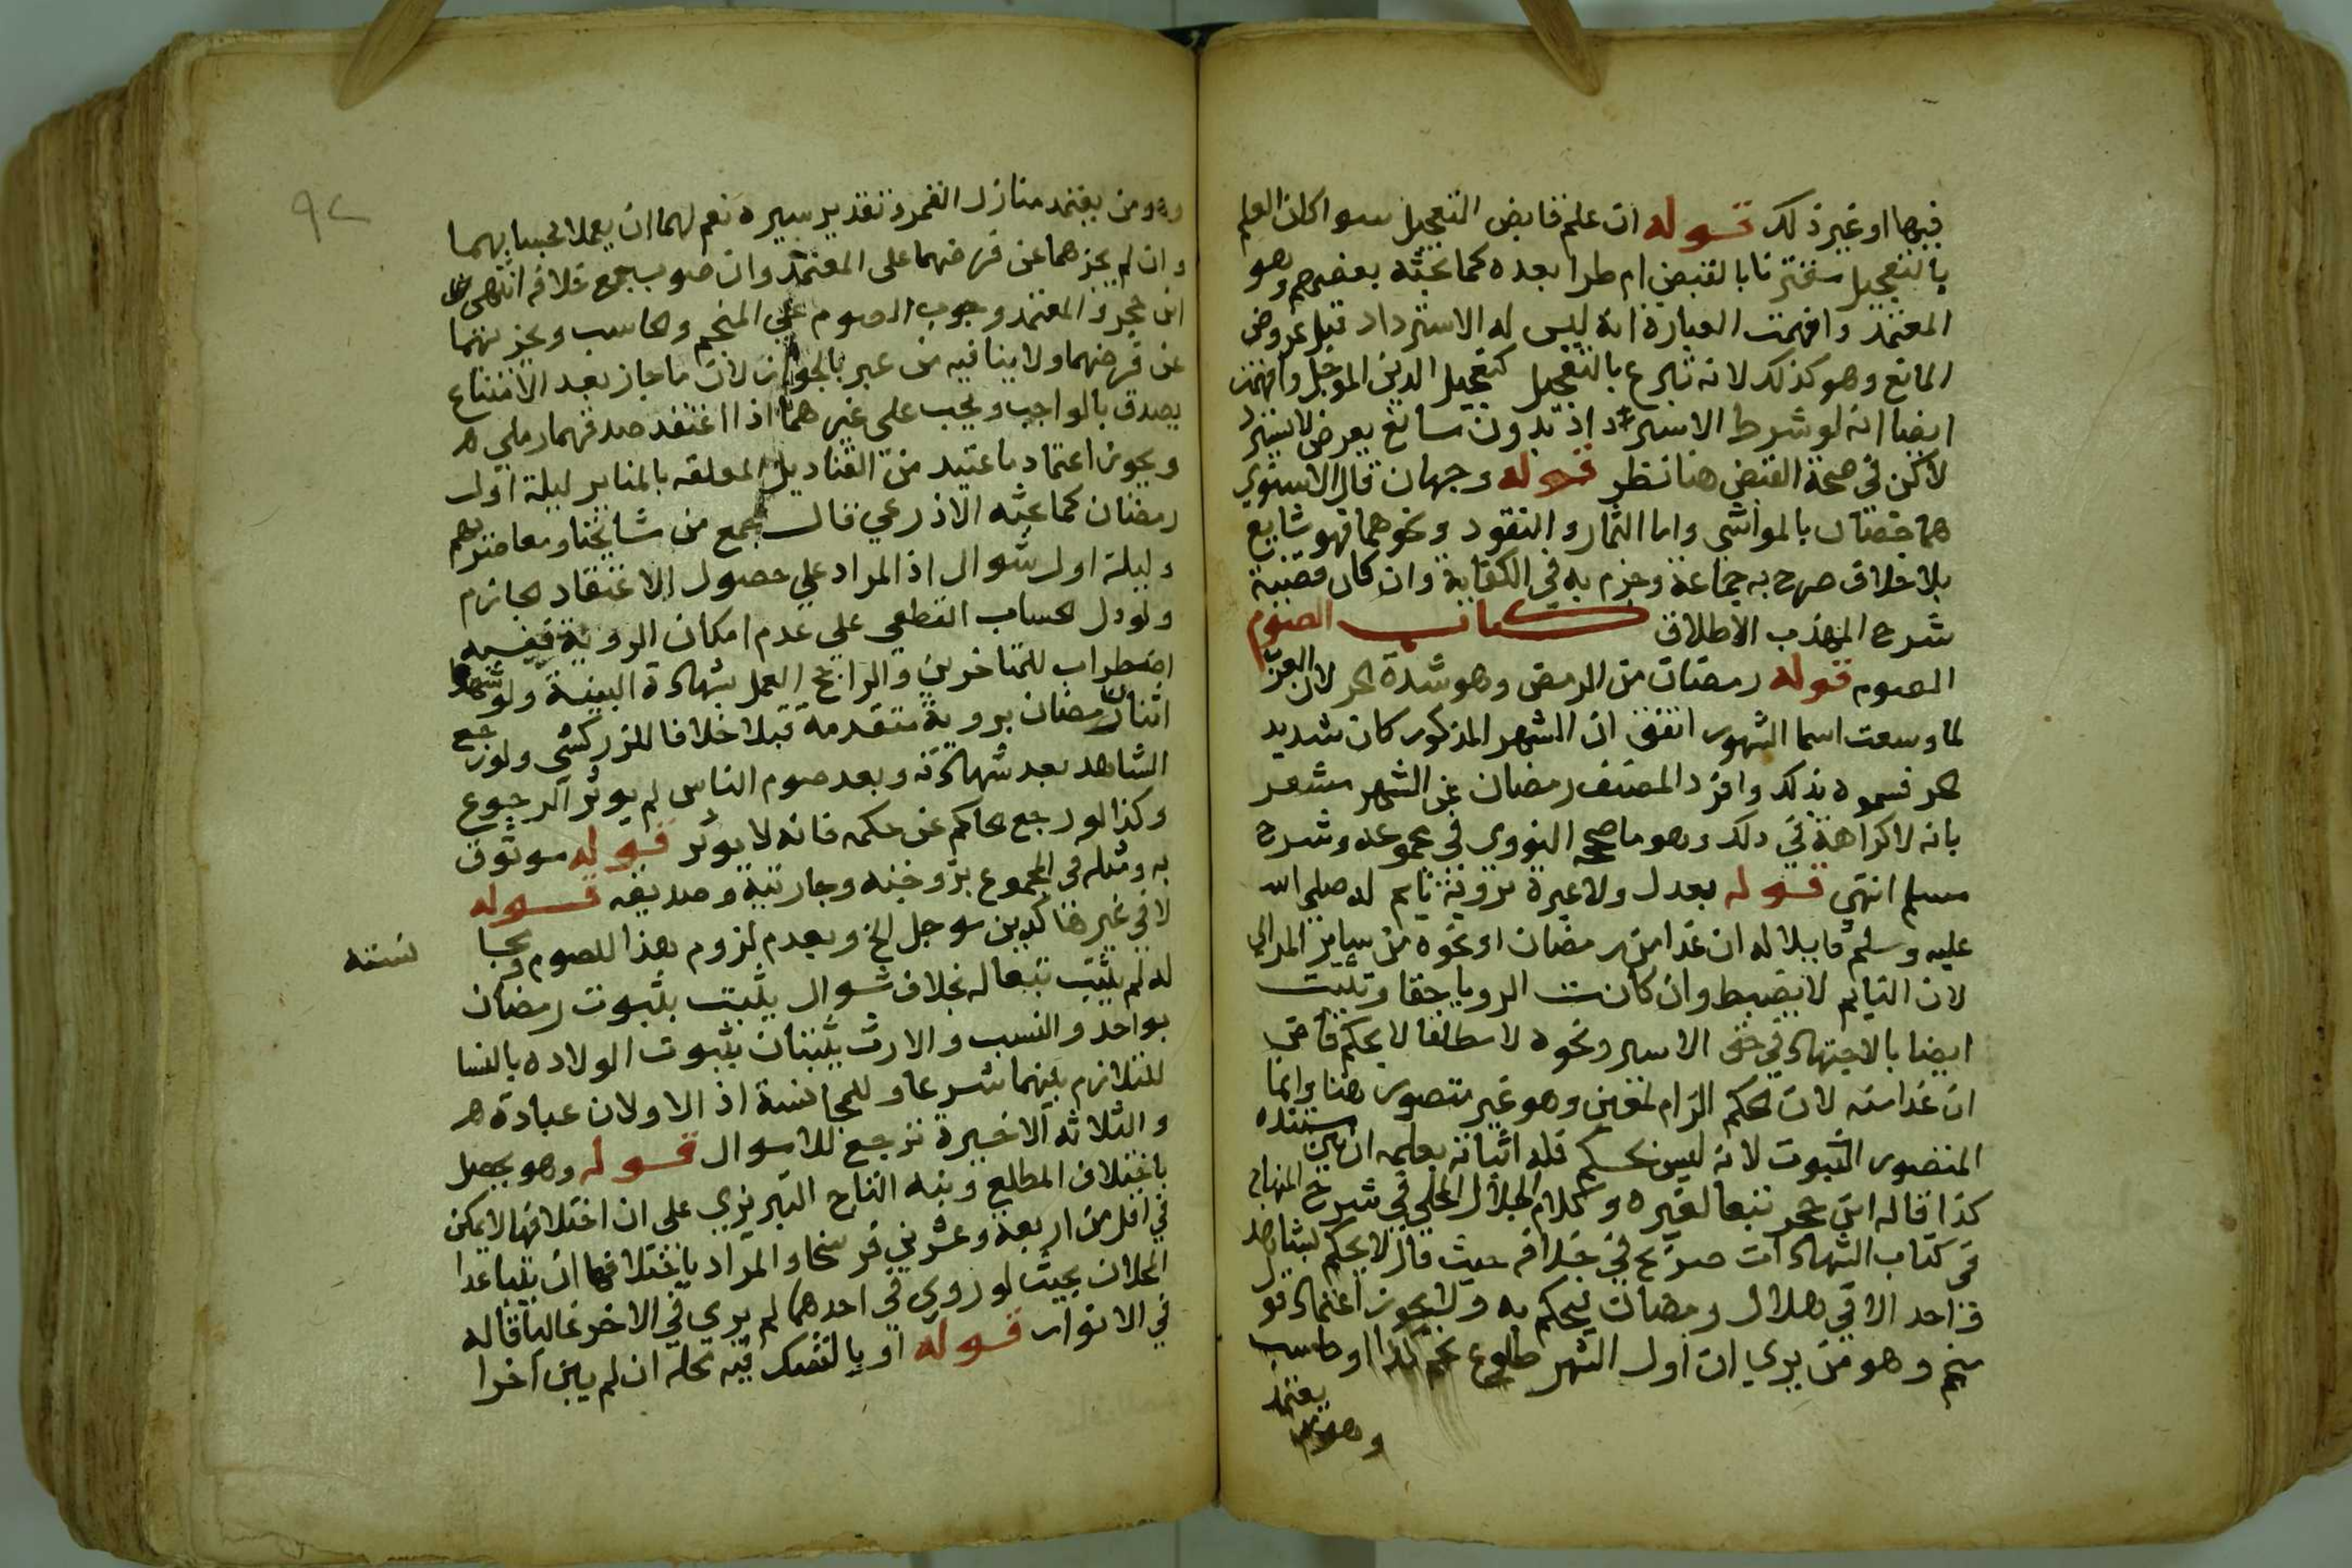 فيها او غير ذلك قوله ان علم قابض التعجيل سوا كان العلم
بالتعجيل مقترنا بالقبض ام طرا بعده كما بحثه بعضهم وهو
المعتمد وافهمت العبارة انه ليس له الاسترداد قبل عروض
المانع وهو كذلك لانه تبرع بالتعجيل كتعجيل الدين الموجل وافهمت
ايضا انه لو شرط الاسترداد بدون مانع يعرض لا يسترد
لاكن في صحة القبض هنا نظر قوله وجهان قال الاسنوي
هما خصتان بالمواشي واما الثمار والنقود ونحوهما فهو شايع
بلا خلاف صرح به جماعة وجزم به في الكفاية وان كان قضية
شرح المهذب الاطلاق كتاب الصوم
الصوم قوله رمضان من الرمض وهو شدة الحر لان العرب
لما وسعت اسما الشهور اتفق ان الشهر المذكور كان شديد
الحر فسموه بذلك وافرد المصنف رمضان عن الشهر مشعر
بانه لا كراهة في ذلك وهو ما صححه النووي في مجموعه وشرح
مسلم انتهي قوله بعدل ولا عبرة بروية نايم له صلى الله
عليه وسلم قايلا له ان غدا من رمضان او نحوه من ساير المراي
لان النايم لا يضبط وان كانت الرويا حقا وتثبت
ايضا بالاجتهاد في حق الاسير ونحوه لا مطلقا لا يحكم قاض
ان غدا منه لان الحكم الزام لمعين وهو غير متصور هنا وانما
المتصور الثبوت لانه ليس بحكم فله اثباته بعلمه ان بين مستنده
كذا قاله ابن حجر تبعا لغيره وكلام الجلال المحلي في شرح المنهاج
في كتاب الشهادات صريح في خلافه حيث قال لا يحكم بشاهد
واحد الا في هلال رمضان يحكم به ولا يجوز اعتماد قول
منجم وهو من يري ان اول الشهر طلوع نجم كذا او حاسب
يعتمد
وهو من
وهو من يعتمد منازل القمر وتقدير سيره نعم لهما ان يعملا بحسابهما
وان لم يجزهما عن فرضهما على المعتمد وان صوب جمع خلافه انتهى
ابن حجر والمعتمد وجوب الصوم علي المنجم والحاسب ويجزيهما
عن فرضهما ولا ينافيه من عبر بالجواز لان ما جاز بعد الامتناع
يصدق بالواجب ويجب على غيرهما اذا اعتقد صدقهما رملي ه
ويجوز اعتماد ما اعتيد من القناديل المعلقه بالمناير ليلة اول
رمضان كما بحثه الاذرعي قال جمع من مشايخنا ومعاصريهم
وليلة اول شوال اذ المراد علي حصول الاعتقاد الجازم
ولو دل الحساب القطعي علي عدم امكان الروية ففيه
اضطراب للمتاخرين والراجح العمل بشهادة البينة ولو شهدا
اثنا رمضان بروية متقدمة قبلا خلافا للزركشي ولو رجع
الشاهد بعد شهادته وبعد صوم الناس لم يوثر الرجوع
وكذا لو رجع الحاكم عن حكمه فانه لا يوثر قوله موثوق
به ومثله في المجموع بزوجته وجاريته وصديقه قوله
لا في غيرها كدين موجل الخ وبعدم لزوم هذا للصوم
له لم يثبت تبعا له بخلاف شوال يثبت بثبوت رمضان
بواحد والنسب والارث يثبتان بثبوت الولاده بالنسا
للتلازم بينهما شرعا وللمجانسة اذ الاولان عبادة ه
والثلاثه الاخيرة ترجع للاموال قوله وهو يحصل
باختلاف المطلع ونبه التاج التبريزي على ان اختلافها لا يمكن
في اقل من اربعة وعشرين فرسخا والمراد باختلافها ان يتباعدا
المحلان بحيث لو روي في احدهما لم يري في الاخر غالبا قاله
في الانوار قوله او بالشك فيه محله ان لم يبن اخرا